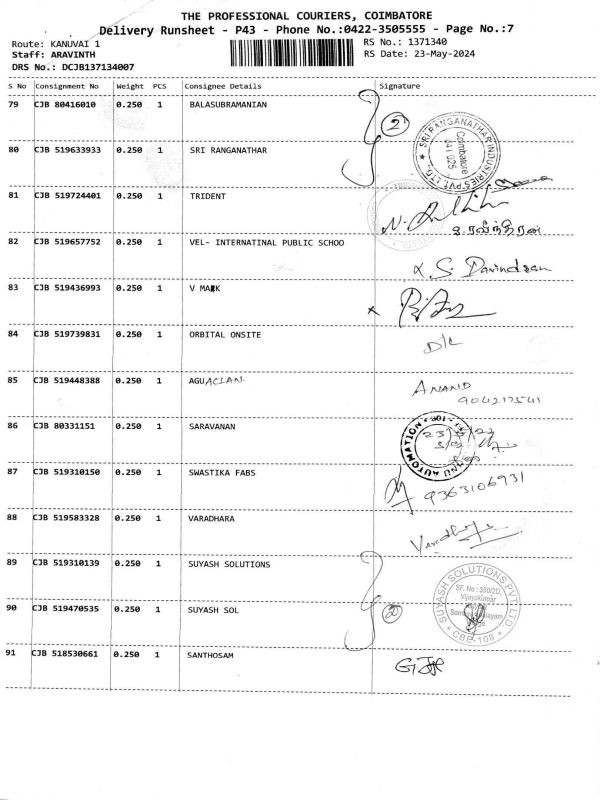 THE PROFESSIONAL COURIERS, COIMBATORE
Delivery Runsheet - P43 - Phone No.:0422-3505555 - Page No.:7
Route: KANUVAI 1
Staff: ARAVINTH
DRS No.: DCJB137134007
RS No.: 1371340
RS Date: 23-May-2024
S No Consignment No Weight PCS Consignee Details Signature
79 CJB 80416010 0.250 1 BALASUBRAMANIAN
2
80 CJB 519633933 0.250 1 SRI RANGANATHAR
SRI RANGANATHAR INDUSTRIES PVT LTD.
Coimbatore
641 025
81 CJB 519724401 0.250 1 TRIDENT
82 CJB 519657752 0.250 1 VEL- INTERNATINAL PUBLIC SCHOO
83 CJB 519436993 0.250 1 V MARK
84 CJB 519739831 0.250 1 ORBITAL ONSITE
D/L
85 CJB 519448388 0.250 1 AGUACLAN
ANAND
904217541
86 CJB 80331151 0.250 1 SARAVANAN
AUTOMATION
87 CJB 519310150 0.250 1 SWASTIKA FABS
9363106931
88 CJB 519583328 0.250 1 VARADHARA
89 CJB 519310139 0.250 1 SUYASH SOLUTIONS
SUYASH SOLUTIONS PVT LTD
SF. No.: 390/2D,
Vijayakumar
CBE 108
90 CJB 519470535 0.250 1 SUYASH SOL
91 CJB 518530661 0.250 1 SANTHOSAM